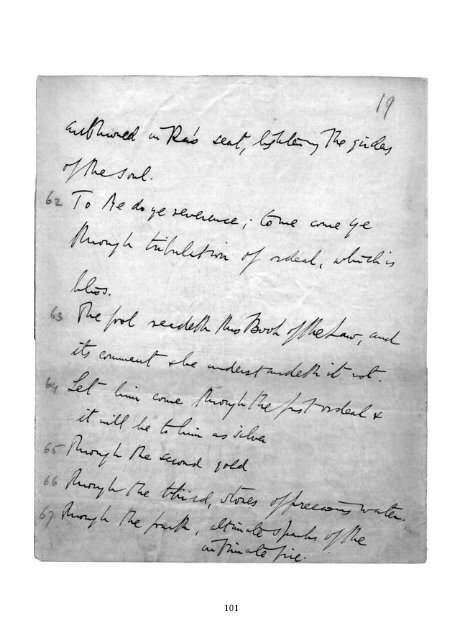 19
enthroned in Ra's seat, lightening the girders
of the soul.
62 To Me do ye reverence; to me come ye
through tribulation of ordeal, which is
bliss.
63 The fool readeth this Book of the Law, and
its comment & he understandeth it not.
64 Let him come through the first ordeal &
it will be to him as silver
65 Through the second gold
66 Through the third, stones of precious water.
67 Through the fourth, ultimate sparks of the
intimate fire.
101